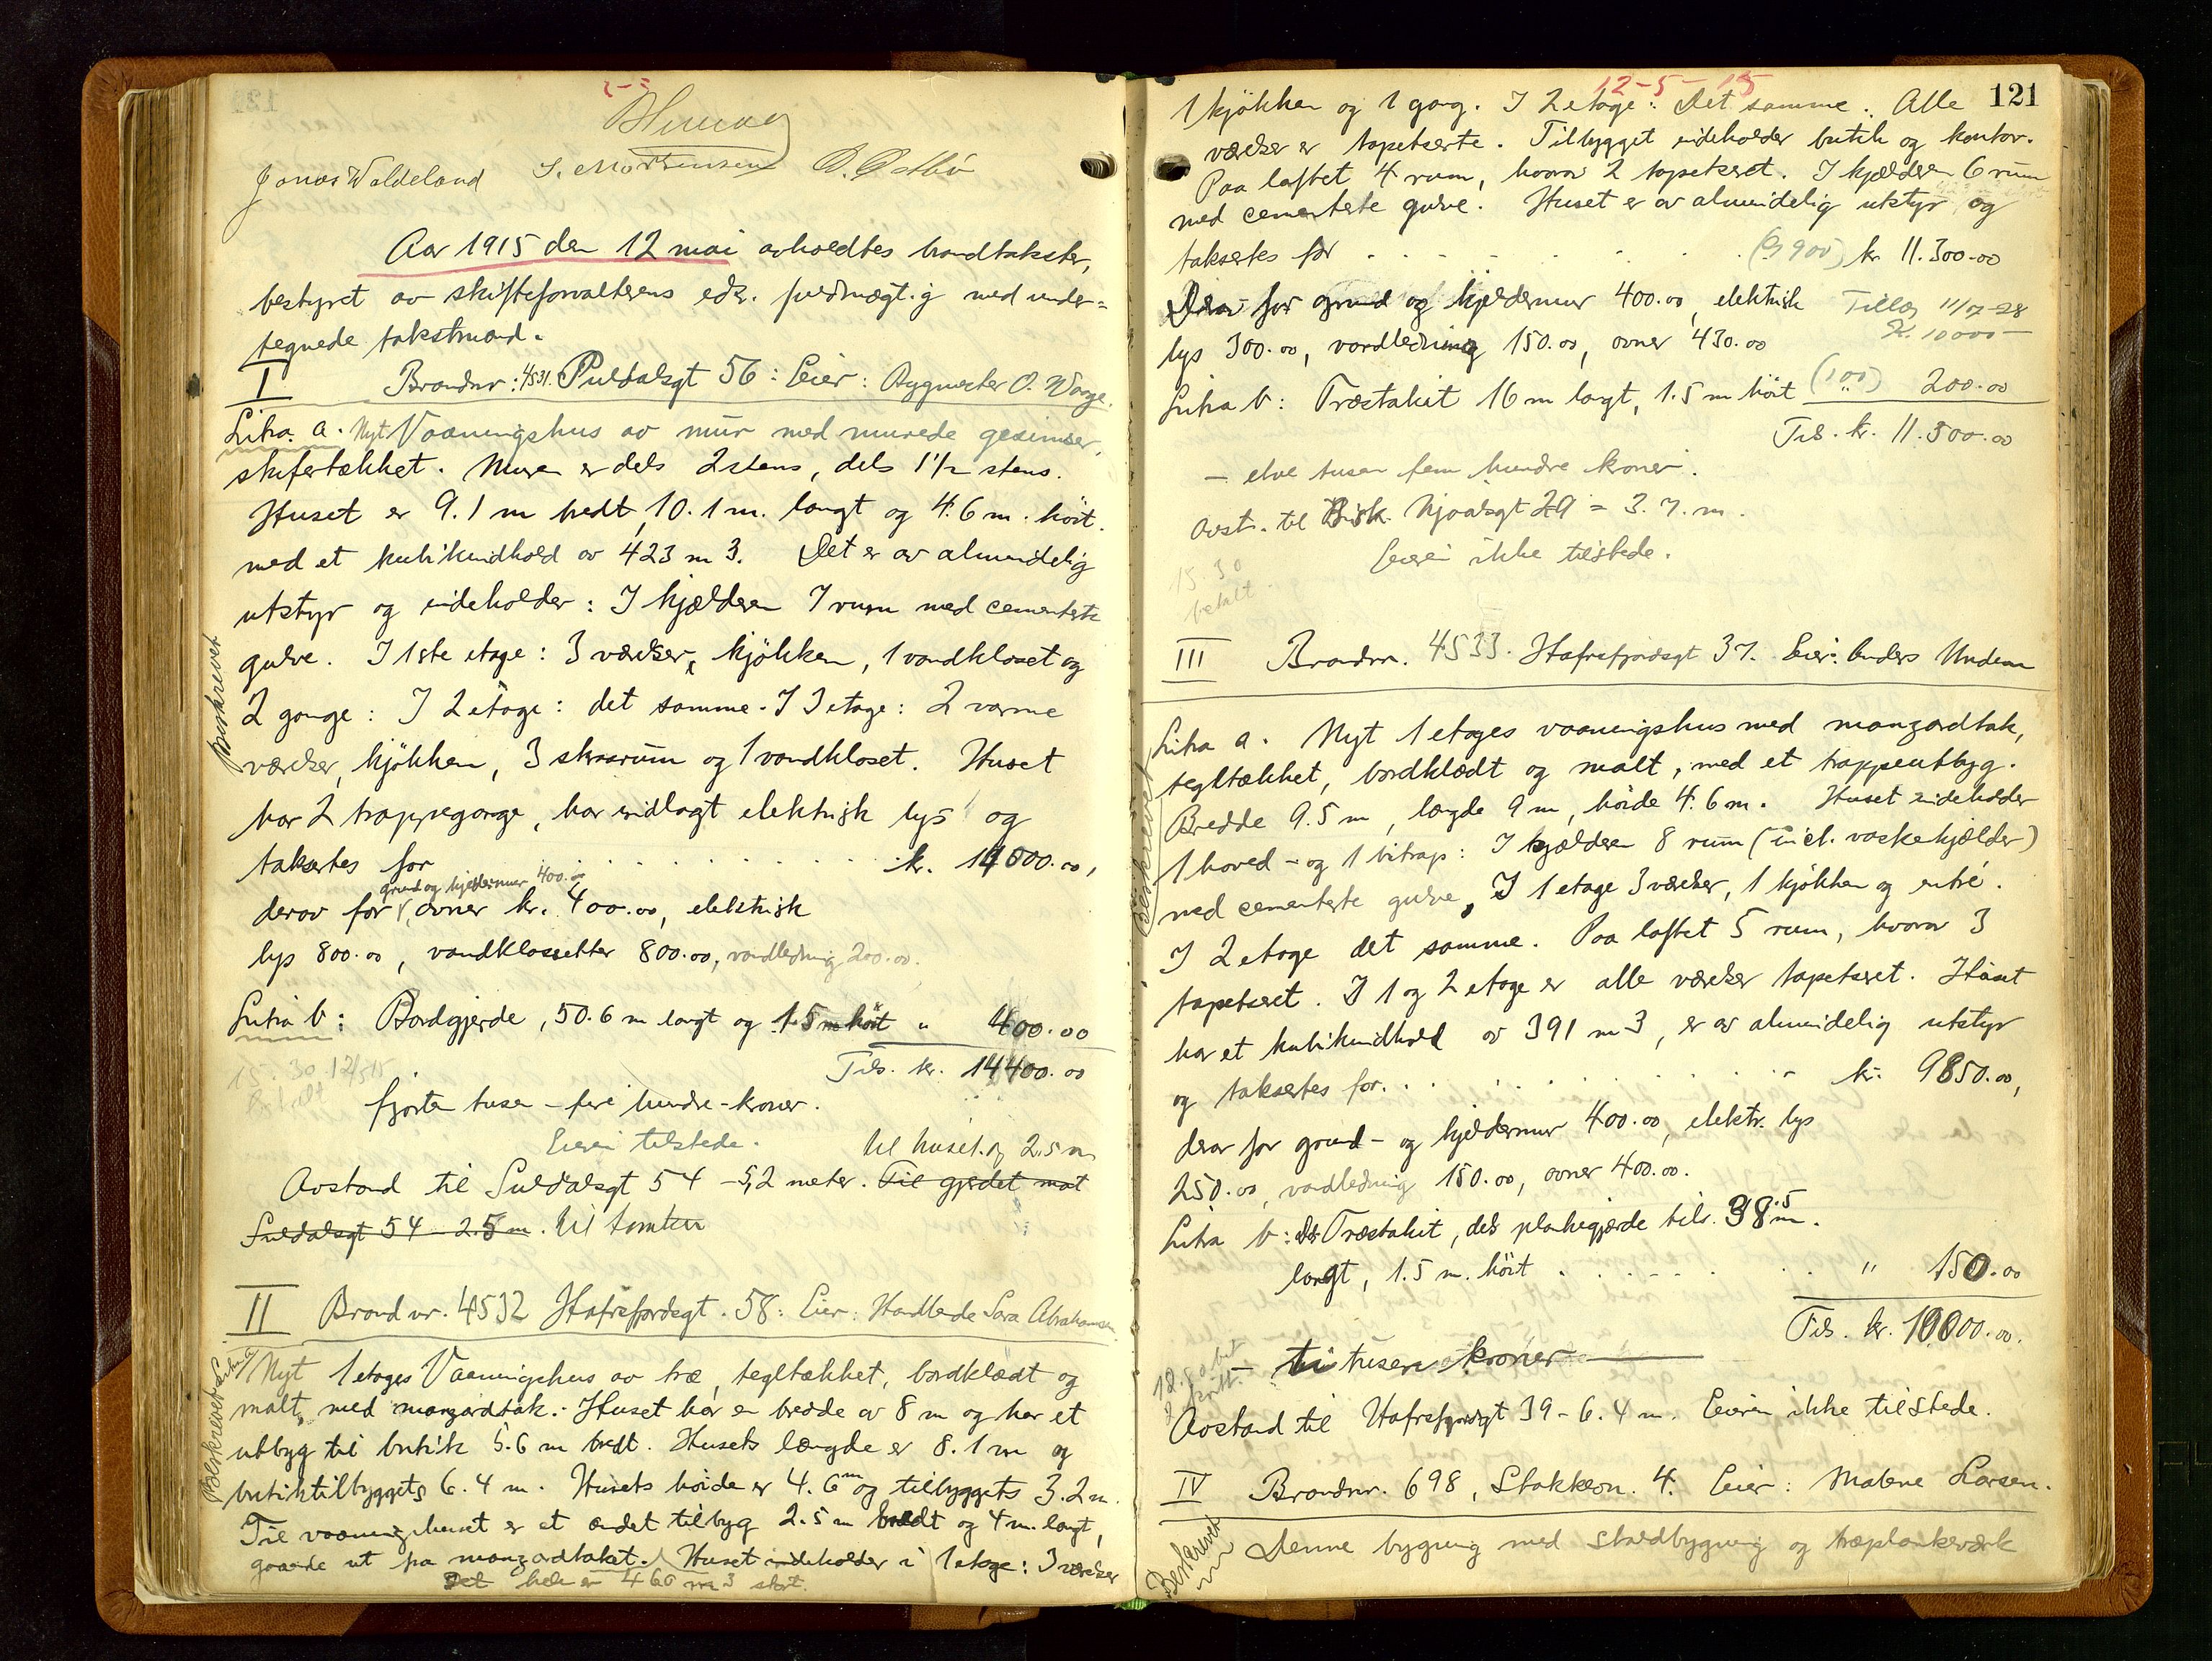 Jonas Waldeland S. Mortensen O. Østbö
Aar 1915 den 12 mai avholdtes brandtakster,
bestyret av skifteforvalterens edsv. fuldmægtig med under=
tegnede takstmænd.
I Brandnr: 4531. Suldalsgt 56: Eier: Bygmester O. Varge.
Litra. a. Nyt Vaaningshus av mur med murede gesimser,
skifertækket. Muren er dels 2 stens, dels 1½ stens.
Huset er 9.1 m bredt, 10.1 m. langt og 4.6 m. höit.
med et kubikindhold av 423 m3. Det er av almindelig
utstyr og indeholder: I kjælderen 7 rum med cementerte
gulve. I 1ste etage: 3 værelser, kjökken, 1 vandkloset og
2 gange: I 2 etage: det samme. I 3 etage: 2 varme
værelser, kjökken, 3 skraarum og 1 vandkloset. Huset
Beskrevet
har 2 trappegange, har indlagt elektrisk lys og
takseres for kr. 14000.00,
grund og kjeldermur 400.00
derav for ovner kr. 400.00, elektrisk
lys 800.00, vandklossetter 800.00, vandledning 200.00.
Litra b: Bordgjerde, 50.6 m langt og 1.5 m höit " 400.00
Tils. kr. 14400.00
15.30 12/5 15
fjorten tusen - fire hundre - kroner.
Eieren tilstede. til huset og 2.5 m
Avstand til Suldalsgt 54 - 5,2 meter. Til gjerdet mot
Suldalsgt 54 - 2.5 m. til tomten
II Brand nr. 4532 Hafrsfjordsgt. 58: Eier: Handlende Sara Abrahamsen
Beskrevet Litra a
Nyt 1 etages Vaaningshus av træ, tegltækket, bordklædt og
malt, med manzardtak. Huset har en bredde av 8 m og har et
utbyg til butik 5.6 m bredt. Husets længde er 8.1 m og
butiktilbyggets 6.4 m. Husets höide er 4.6 m og tilbyggets 3.2 m.
Til vaaningshuset er et andet tilbyg 2.5 m bredt og 4 m. langt,
gaaende ut fra manzardtaket. Huset indeholder i 1 etage: 3 værelser
Det hele er 466 m3 stort.
12-5-15
121
1 kjökken og 1 gang. I 2 etage: Det samme. Alle
værelser er tapetserte. Tilbygget indeholder butik og kontor.
Paa loftet 4 rum, hvorav 2 tapetseret. I kjælderen 6 rum
med cementerte gulve. Huset er av almindelig utstyr og
takseres for (9900) kr 11.300.00
Derav for grund og kjeldermur 400.00, elektrisk Tillæg 11/7-28
lys 300.00, vandledning 150.00, ovner 430.00 Kr. 10000-
Litra b: Træstakit 16 m langt, 1.5 m höit (100) " 200.00
Tils. kr. 11.500.00
- elve tusen fem hundre kroner.
Avst. til Bisk. Njaalsgt 29 = 3.7. m.
Eieren ikke tilstede.
15.30
betalt.
III Brandnr. 4533. Hafrsfjordsgt 37. Eier: Anders Undem
Beskrevet
Litra a. Nyt 1 etages vaaningshus med manzardtak,
tegltækket, bordklædt og malt, med et trappeutbyg.
Bredde 9.5 m, længde 9 m, höide 4.6 m. Huset indeholder
1 hoved- og 1 bitrap: I kjælderen 8 rum (incl. vaskekjælder)
med cementerte gulve, I 1 etage 3 værelser, 1 kjökken og entré.
I 2 etage det samme. Paa loftet 5 rum, hvorav 3
tapetseret. I 1 og 2 etage er alle værelser tapetseret. Huset
har et kubikindhold av 391 m3, er av almindelig utstyr
og takseres for. kr. 9850.00,
derav for grund- og kjeldermur 400.00, elektr. lys
250.00, vandledning 150.00, ovner 400.00.
Litra b: Træstakit, dels plankegjerde tils. 38.5 m.
langt, 1.5 m. höit " 150.00
Tils. kr. 10000.00.
- ti tusen kroner
Avstand til Hafrsfjordsgt 39 - 6.4 m. Eieren ikke tilstede.
IV Brandnr. 698, Stokkeon. 4. Eier: Malene Larsen.
Beskrevet
Denne bygning med skurbygning og træplankeværk